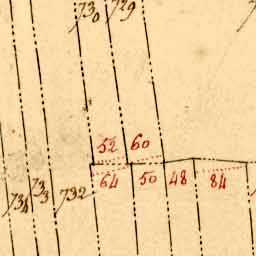 730 729
52 60
64 50 48 84
734 733 732